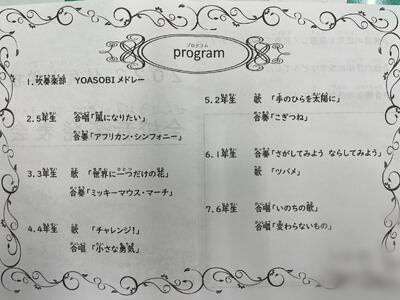 プログラム
program
1.吹奏楽部 YOASOBI メドレー
2.5年生 合唱「風になりたい」
合奏「アフリカン・シンフォニー」
3.3年生 歌 「世界に一つだけの花」
合奏「ミッキーマウス・マーチ」
4.4年生 歌 「チャレンジ!」
合唱「小さな勇気」
5.2年生 歌 「手のひらを太陽に」
合奏「こぎつね」
6.1年生 合奏「さがしてみよう ならしてみよう」
歌 「ツバメ」
7.6年生 合唱「いのちの歌」
合唱「変わらないもの」